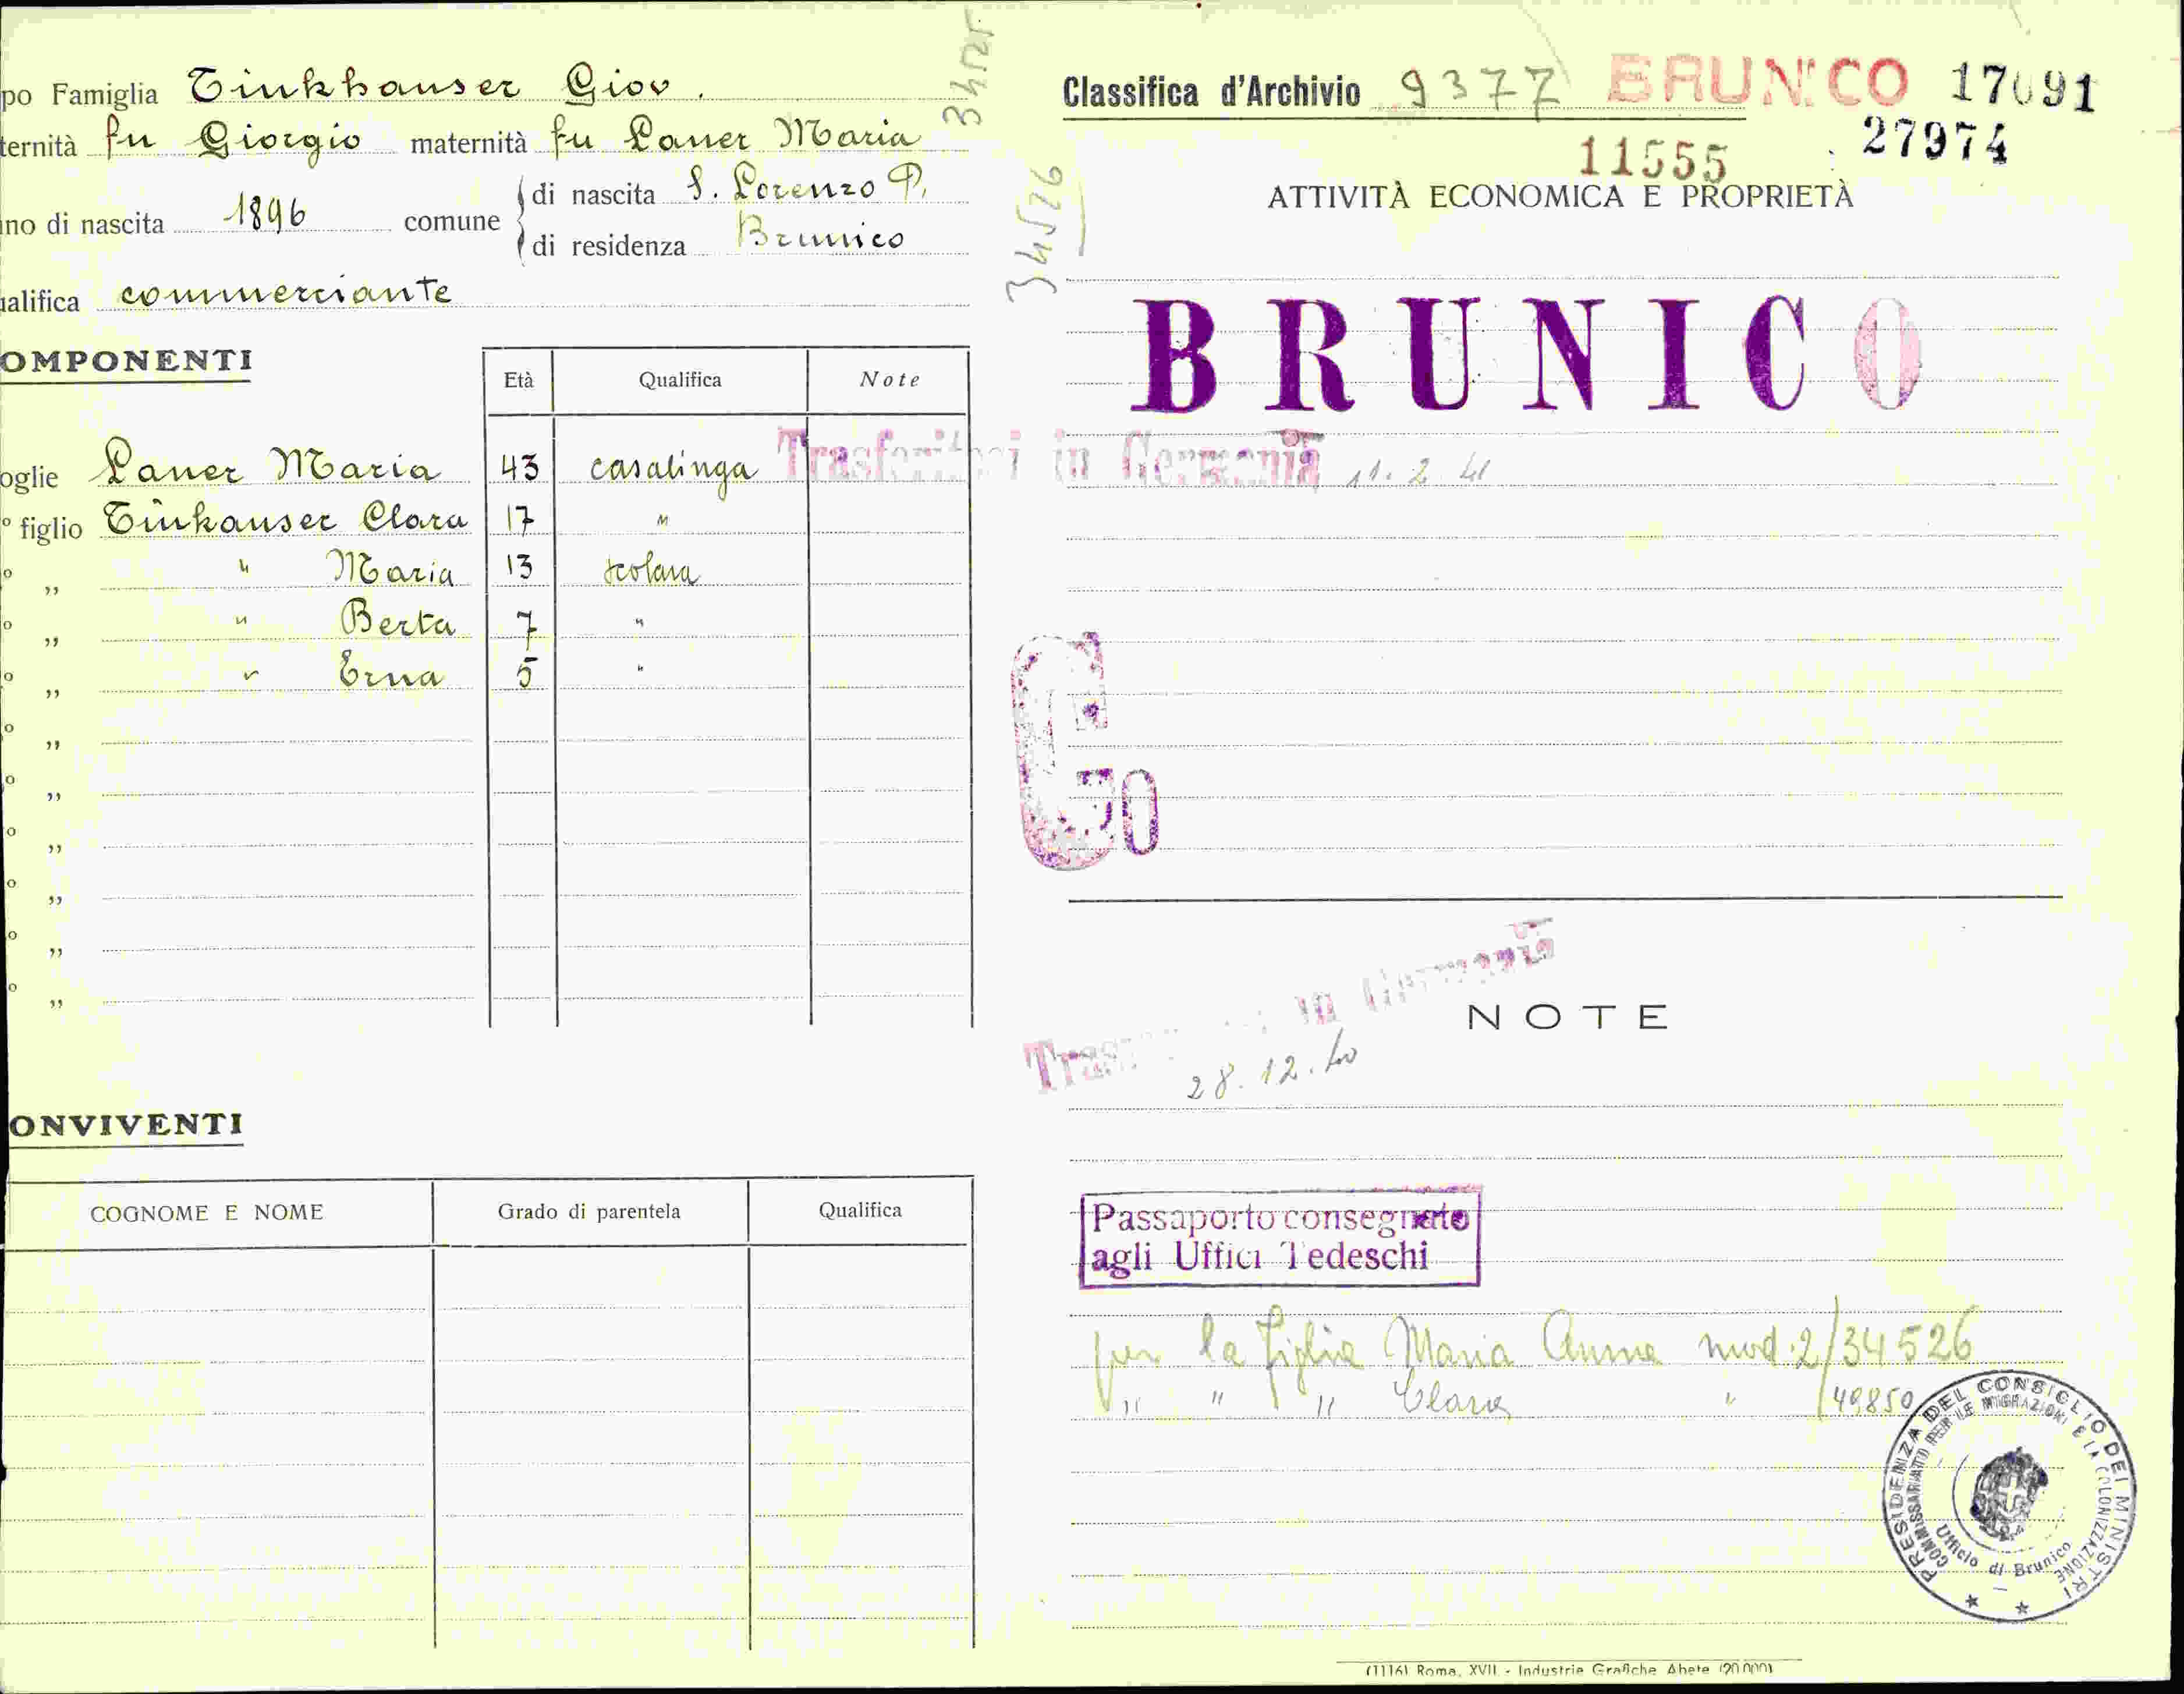 po Famiglia Tinkhauser Giov.
ternità fu Giorgio maternità fu Laner Maria
ino di nascita 1896 comune di nascita S. Lorenzo P.
di residenza Brunico
ualifica commerciante
34525
34526
OMPONENTI
Età Qualifica Note
oglie Laner Maria 43 casalinga
° figlio Tinkauser Clara 17 "
° ,, " Maria 13 scolara
° ,, " Berta 7 "
° ,, " Erna 5 "
° ,,
° ,,
° ,,
° ,,
° ,,
° ,,
ONVIVENTI
COGNOME E NOME Grado di parentela Qualifica
Classifica d'Archivio 9377 BRUNICO 17091
11555 27974
ATTIVITÀ ECONOMICA E PROPRIETÀ
BRUNICO
Trasferitosi in Germania 11.2.41
G
NOTE
in Germania
28.12.40
Passaporto consegnato
agli Uffici Tedeschi
per la figlia Maria Anna mod. 2/34526
" " " Clara " /49850
PRESIDENZA DEL CONSIGLIO DEI MINISTRI
COMMISSARIATO PER LE MIGRAZIONI E LA COLONIZZAZIONE
Ufficio di Brunico
(1116) Roma, XVII - Industrie Grafiche Abete (20.000)